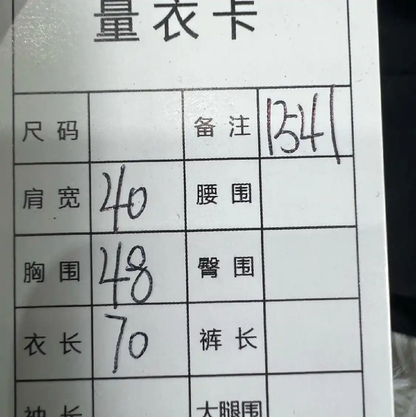 量衣卡
尺码 备注 1541
肩宽 40 腰围
胸围 48 臀围
衣长 70 裤长
袖长 大腿围